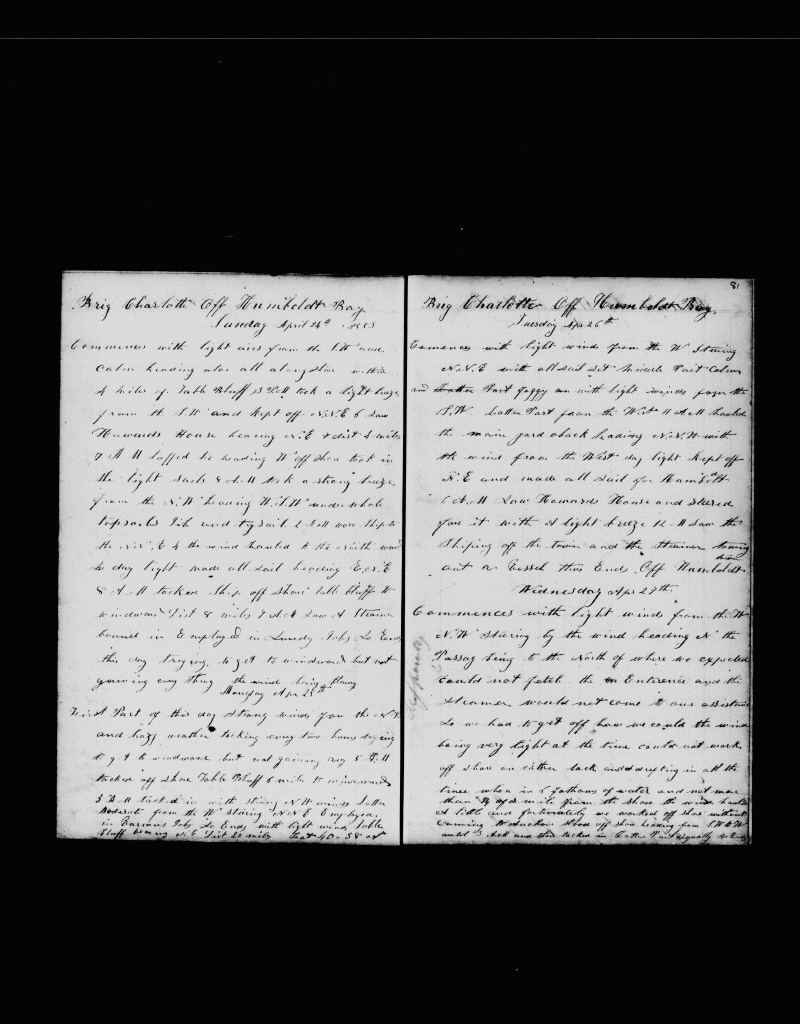 Brig Charlotte Off Humboldt Bay
Sunday April 24th 1853
Commences with light airs from the S.W. and
calm heading along shore within
4 miles of Table Bluff 3 P.M took a light breeze
from the S.W and Kept off N.N.E 6 Saw
House bearing N.E dist 4 miles
7 luffed to heading W off Shore took in
the light sails 8 took a strong breeze
from the N.W heading under whole
topsails Jib and trysail 2 A.M wore Ship to
the N.N.E 4 the wind hauled to the North ward
day light made all sail heading E.N.E
8 A.M tacked Ship off Shore Table Bluff
windward Dist 8 miles Saw A Steamer
bound in Employed in Sundry Jobs So Ends
this day trying to get to windward but not
gaining any thing the wind being
Monday Apr 25th
First Part of this day Strong winds from the N.W
and hazy weather tacking every two hours trying
to get to windward but not gaining any 8 P.M
tacked off Shore Table Bluff 6 miles to windward
3 A.M tacked in with strong N.W winds Latter
Moderate from the W Steering N.N.E Employed
in Various Jobs So Ends with light winds Table
Bluff bearing N.E Dist 20 miles Lat 40 58
81
Brig Charlotte Off Humboldt Bay.
Tuesday Apr 26th
Comences with light winds from the W Stering
N.N.E with all sail Set Middle Part Calm
and Latter Part foggy with light winds from the
S.W. Latter Part from the West 11 A.M hauled
the main yard aback heading N.N.W with
the wind from the West day light Kept off
N.E and made all sail for Humboldt
6 A.M Saw Howards House and Stered
for it with A light breze 12 M Saw the
Shiping off the town and the Steamer towing
down
out a Vessel thus Ends Off Humboldt
Wednesday Apr 27th.
Commences with light winds from the W
N.W Stering by the wind heading N the
Passag being to the North of where we expected
could not fetch the Enterence and the
Steamer would not come to our assistance
So we had to get off how we could the wind
being very light at the time could not work
off Shore on either tack and drifting in all the
time when in 5 fathoms of water and not more
than of a mile from the Shore the wind hauled
A little and fortunately we worked off Shore without
Comming to Stood off Shore heading from S.W to W
until 3 A.M and then tacked in Latter Part So Ends